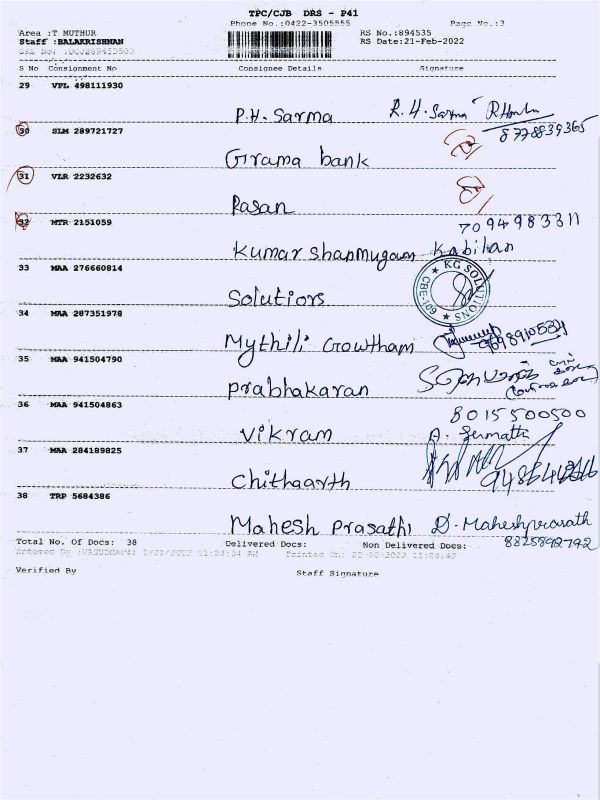 TPC/CJB DRS - P41
Phone No.:0422-3505555 Page No.:3
Area :T MUTHUR RS No.:894535
Staff :BALAKRISHNAN RS Date:21-Feb-2022
S No Consignment No Consignee Details Signature
29 VPL 498111930
P.H. Sarma R.H. Sarma
8778839365
30 SLM 289721727
Grama bank
31 VLR 2232632
Rasan
32 MTR 2151059 7094983311
Kumar Shanmugam Kabilan
33 MAA 276660814
Solutiors KG SOLUTIONS CBE-109
34 MAA 287351978
Mythili Gowtham 9698910534
35 MAA 941504790
Prabhakaran
36 MAA 941504863 8015500500
Vikram A.
37 MAA 284189825
Chithaarth
38 TRP 5684386
Mahesh Prasathi D. Maheshprasath
Total No. Of Docs: 38 Delivered Docs: Non Delivered Docs: 8825892792
Verified By Staff Signature